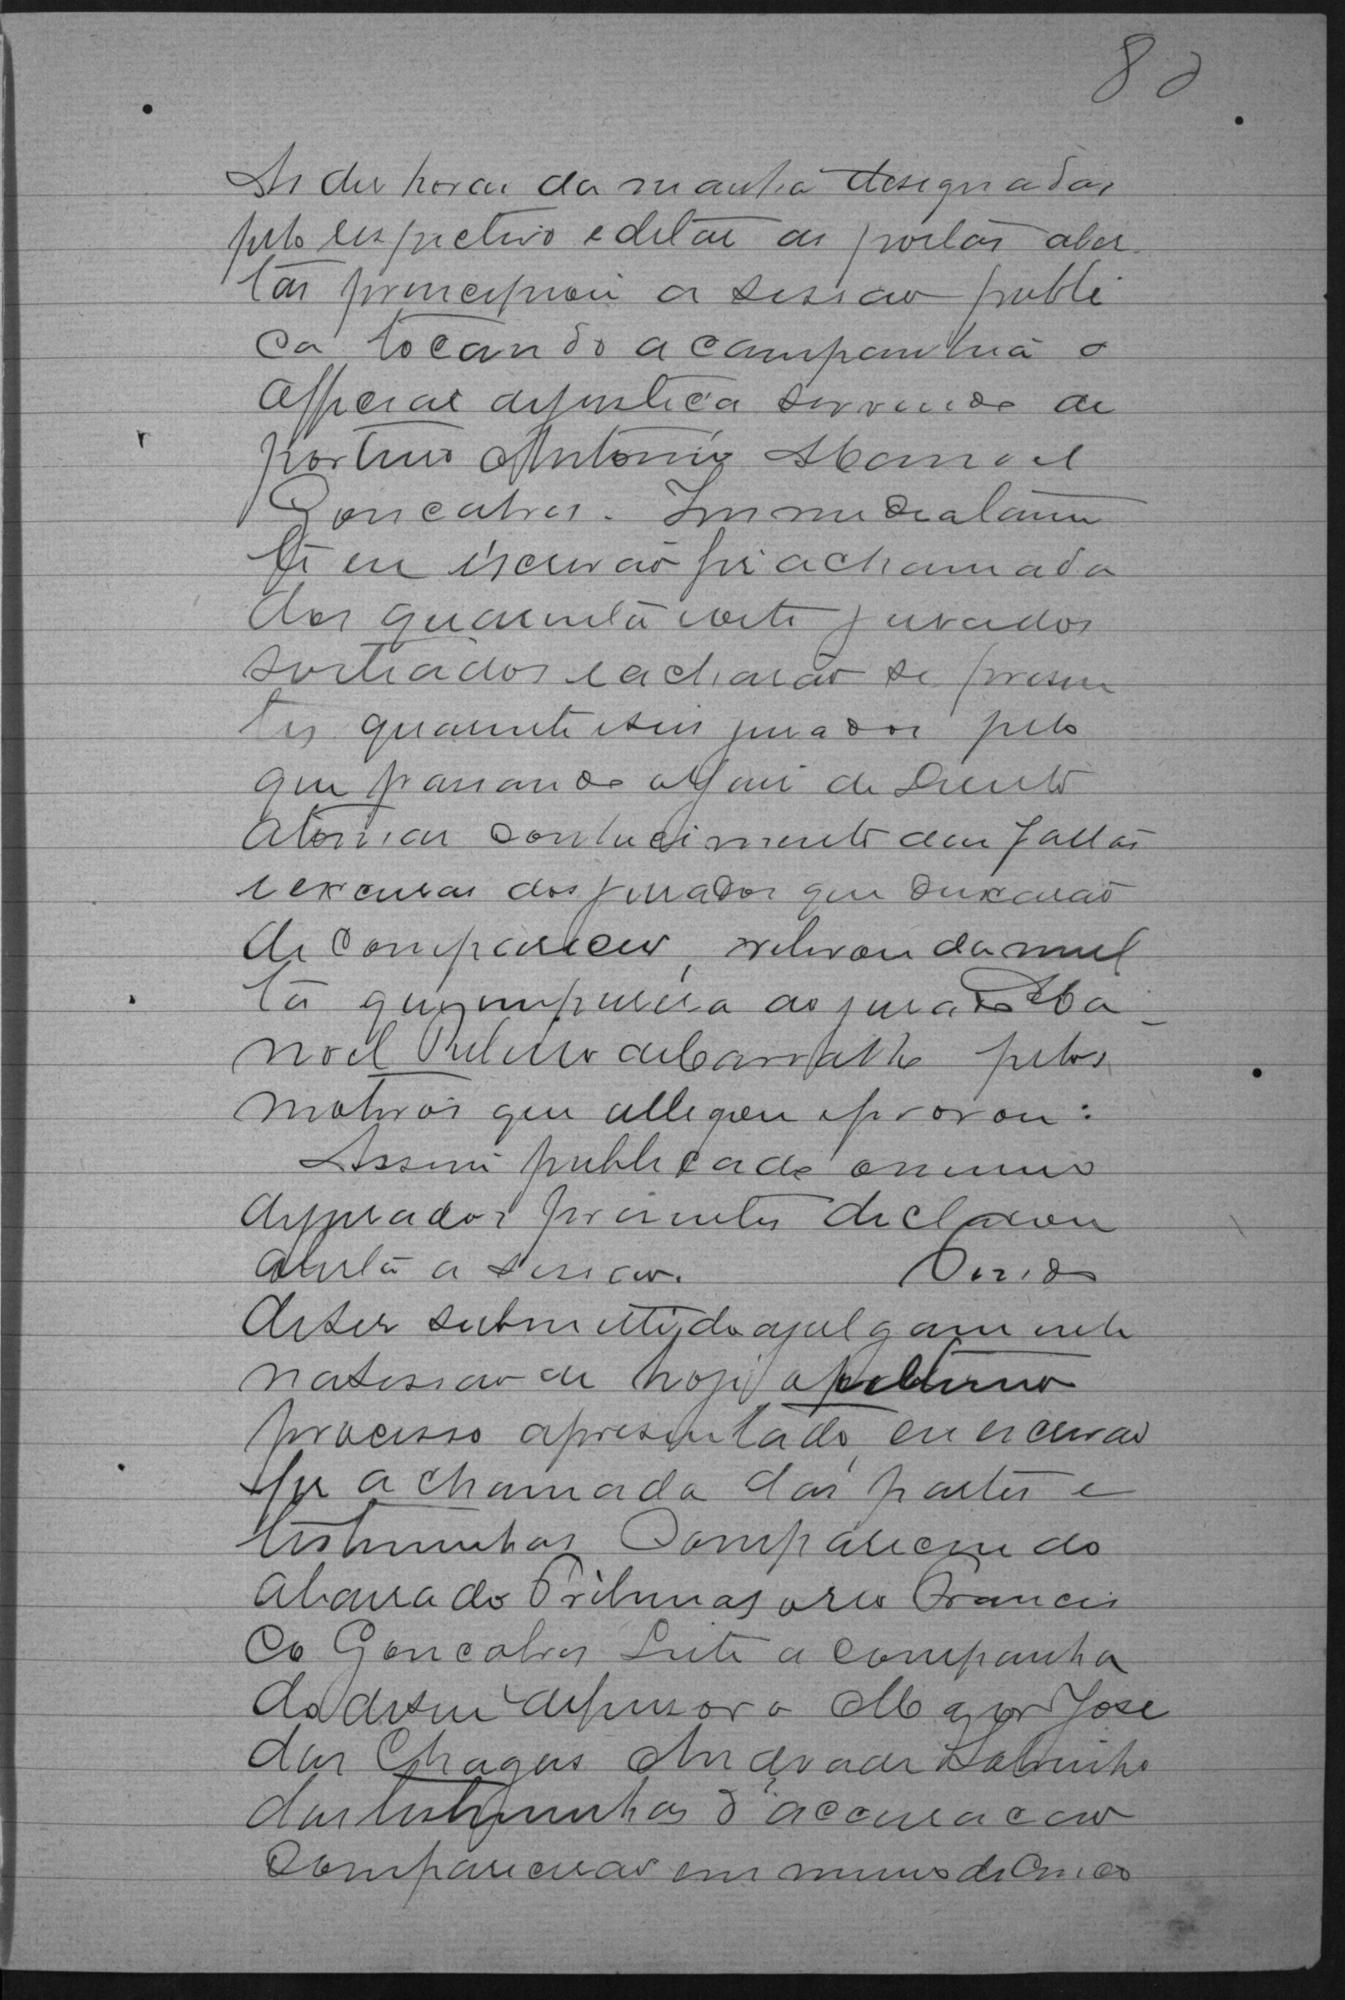 80
As des horas da manhã designadas
pelo respectivo edital as portas aber
tas principiou a sessão publi
ca tocando a campanhia o
Official de justiça servindo de
porteiro Antonio Manoel
Goncalves. Immediatamen
te eu escrivão fiz a chamada
dos quarenta e sete jurados
sorteados e acharão se presen
tes quarenta e seis jurados pelo
que passando o Juiz de Direito
a tomar conhecimento das faltas
e excusas dos jurados que deixarão
de comparecer, relevou da mul
ta que impusera ao jurado Ma
noel Ribeiro de Carvalho pelos
motivos que allegou e provou:
Assim publicado o numero
de jurados presentes declarou
aberta a sessão. Tendo
de ser submettido a julgamento
na sessão de hoje o
processo apresentado, eu escrivão
fiz a chamada das partes e
testimunhas Comparecendo
a barra do Tribunal o reo Francis
co Goncalves Leite acompanha
do de seu defensor o Major José
das Chagas Andrade Sobrinho
das testimunhas d'accusacao
Comparecerão em numero de Cinco